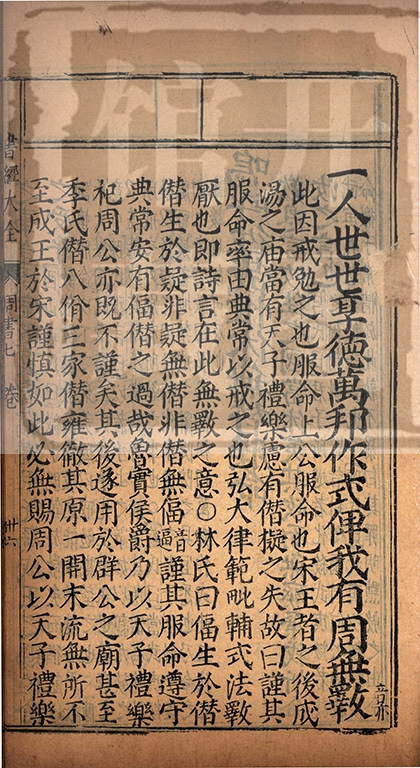 一人世世享德萬邦作式俾我有周無斁音亦
此因戒勉之也服命上公服命也宋王者之後成
湯之庙當有天子禮樂慮有僣擬之失故曰謹其
服命率由典常以戒之也弘大律範毗輔式法斁
厭也即詩言在此無斁之意○林氏曰偪生於僣
僣生於疑非疑無僣非僣無偪音逼謹其服命遵守
典常安有偪僣之過哉魯實侯爵乃以天子禮樂
祀周公亦既不謹矣其後遂用於群公之廟甚至
季氏僣八佾三家僣雍徹其原一開末流無所不
至成王於宋謹慎如此必無賜周公以天子禮樂
書經大全 周書七卷 卅六